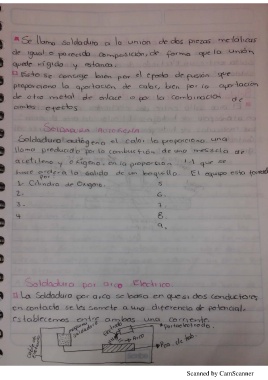 * Se llama soldadura a la unión de dos piezas metálicas
de igual o parecida composición, de forma que la unión
quede rígida y estanca.
Esto se consigue bien por el efecto de fusión que
proporciona la aportación de calor, bien por la aportación
de otro metal de enlace o por la combinación de
ambos efectos.
Soldadura
Soldadura autógena el calor lo proporciona una
llama producida por la combustión de una mezcla de
acetileno y oxígeno, en la proporción 1:1 que se
hace arder a la salida de un boquilla. El equipo esta
1- Cilindro de Oxigeno. 5.
2. 6.
3. 7.
4 8.
9.
Soldadura por arco Electrico
La Soldadura por arco se basa en que si dos conductores
en contacto se les somete a una diferencia de potencial,
establecemos entre ambos una corriente.
Arco
Scanned by CamScanner